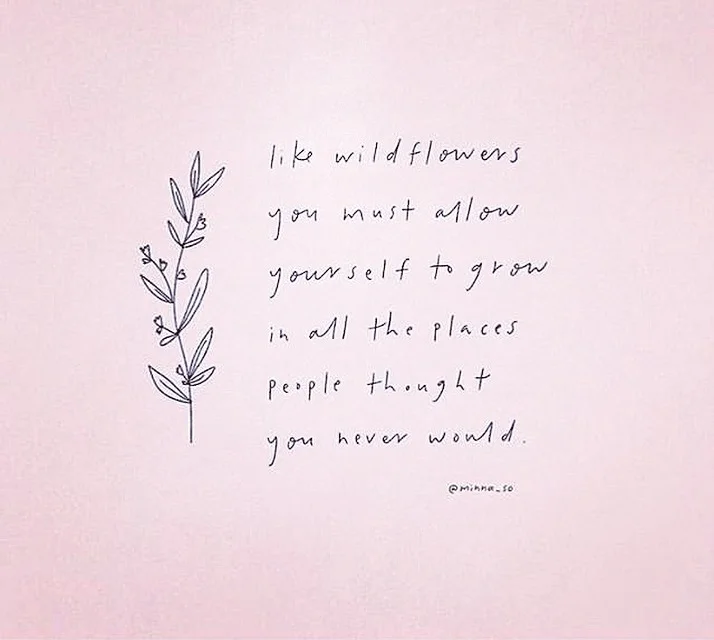 like wildflowers
you must allow
yourself to grow
in all the places
people thought
you never would.
@minna_so